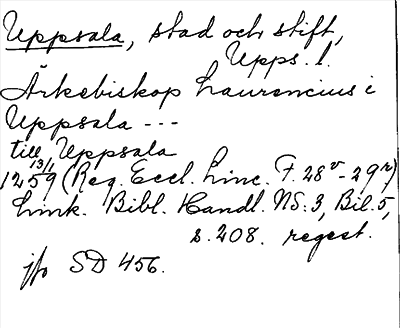 Uppsala, stad och stift,
Upps. l.
Ärkebiskop Laurencius i
Uppsala ---
till Uppsala
1259 13/1 (Reg. Eccl. Linc. F. 28v - 29r)
Link. Bibl. Handl. NS: 3, Bil. 5,
s. 208. regest.
jfr SD 456.